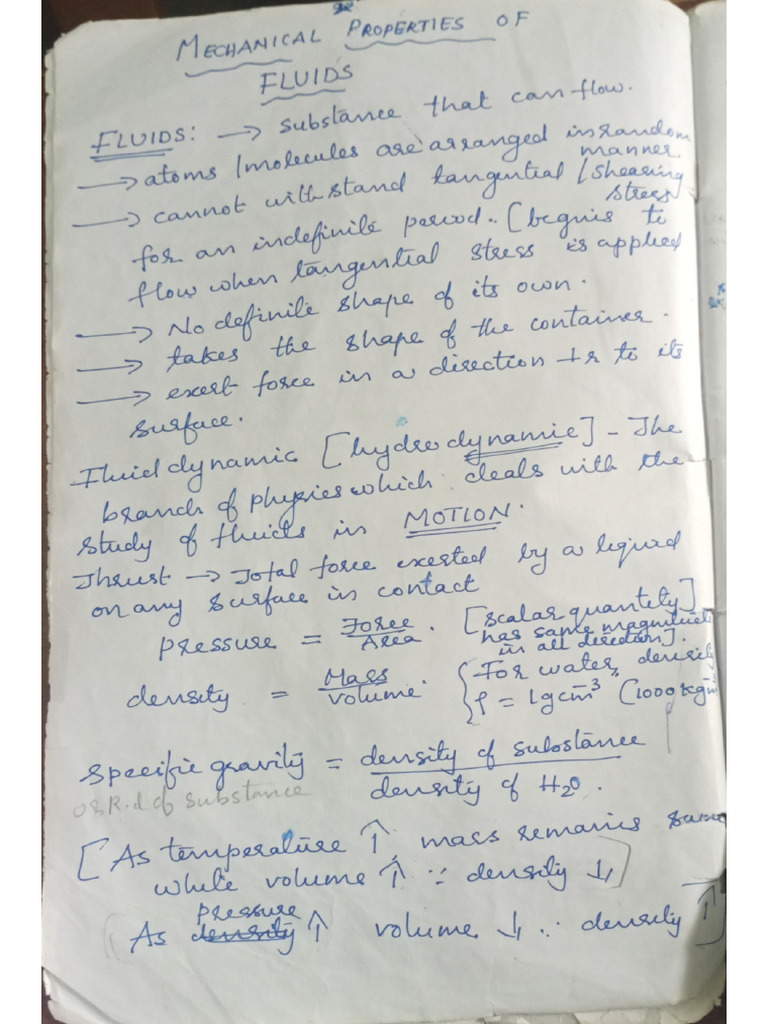 MECHANICAL PROPERTIES OF
FLUIDS
FLUIDS: → substance that can flow.
→ atoms / molecules are arranged in random
manner.
→ cannot with stand tangential / shearing
stress
for an indefinite period.. [begnis to
flow when tangential stress is applied
→ No definite shape of its own.
→ takes the shape of the container.
→ exert force in a direction ⊥r to its
surface.
Fluid dynamic [hydrodynamic] - The
branch of physics which deals with the
study of fluids in MOTION.
Thrust → Total force exerted by a liquid
on any surface in contact
Pressure = Force / Area . [scalar quantity]
has same magnitude
in all direction].
density = Mass / volume . { For water, density
ρ = 1gcm⁻³ (1000kgm⁻³
Specific gravity = density of substance / density of H₂O .
or R.d of substance
[As temperature ↑, mass remains same
while volume ↑ ∵ density ↓]
pressure
(As density ↑ volume ↓ ∴ density ↑]